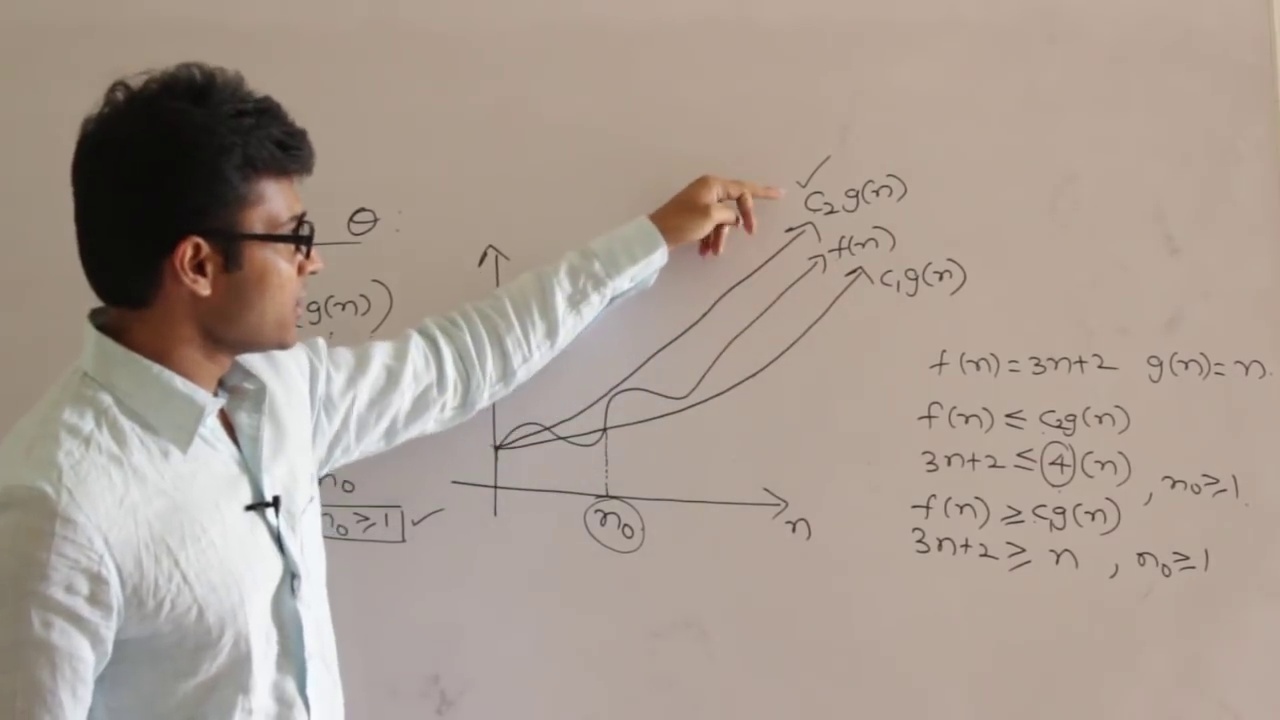 θ :
g(n))
n₀
n₀ ≥ 1 ✓
✓
c₂g(n)
f(n)
c₁g(n)
n₀
n
f(n) = 3n+2 g(n) = n.
f(n) ≤ c₂g(n)
3n+2 ≤ 4(n) , n₀ ≥ 1
f(n) ≥ c₁g(n)
3n+2 ≥ n , n₀ ≥ 1